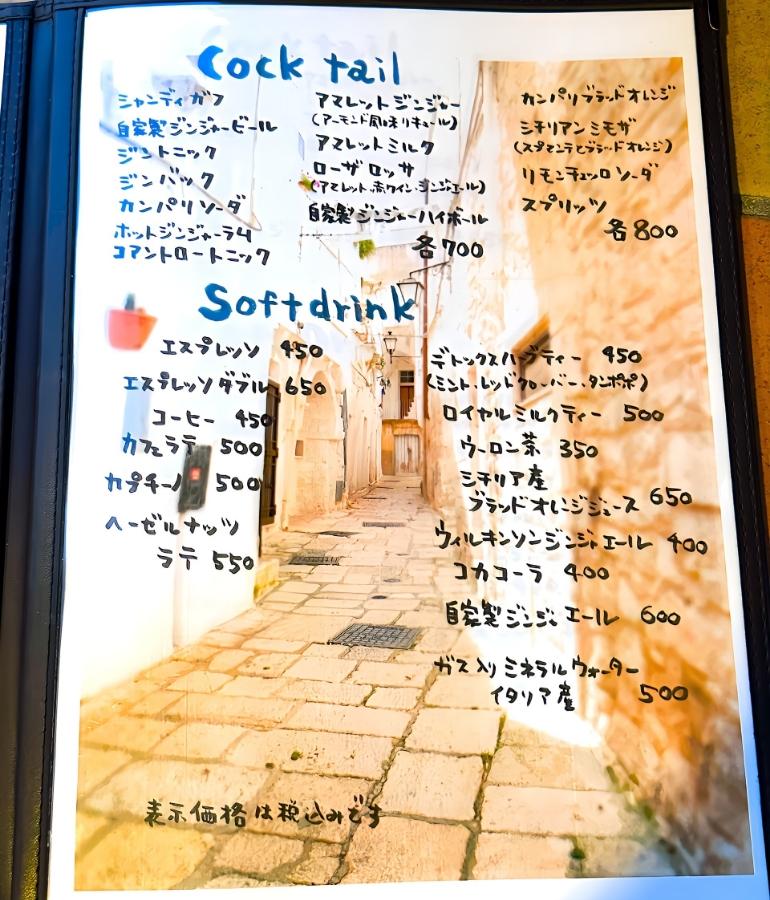 Cock tail
シャンディガフ
自家製ジンジャービール
ジントニック
ジンバック
カンパリソーダ
ホットジンジャーラム
コアントロートニック
アマレットジンジャー
(アーモンド風味リキュール)
アマレットミルク
ローザロッサ
(アマレット、赤ワイン、ジンジャエール)
自家製ジンジャーハイボール
各700
カンパリブラッドオレンジ
シチリアンミモザ
(スプマンテとブラッドオレンジ)
リモンチェッロソーダ
スプリッツ
各800
Softdrink
エスプレッソ 450
エスプレッソダブル 650
コーヒー 450
カフェラテ 500
カプチーノ 500
ヘーゼルナッツ
ラテ 550
デトックスハーブティー 450
(ミント、レッドクローバー、タンポポ)
ロイヤルミルクティー 500
ウーロン茶 350
シチリア産
ブラッドオレンジジュース 650
ウィルキンソンジンジャエール 400
コカコーラ 400
自家製ジンジャエール 600
ガス入りミネラルウォーター
イタリア産 500
表示価格は税込みです